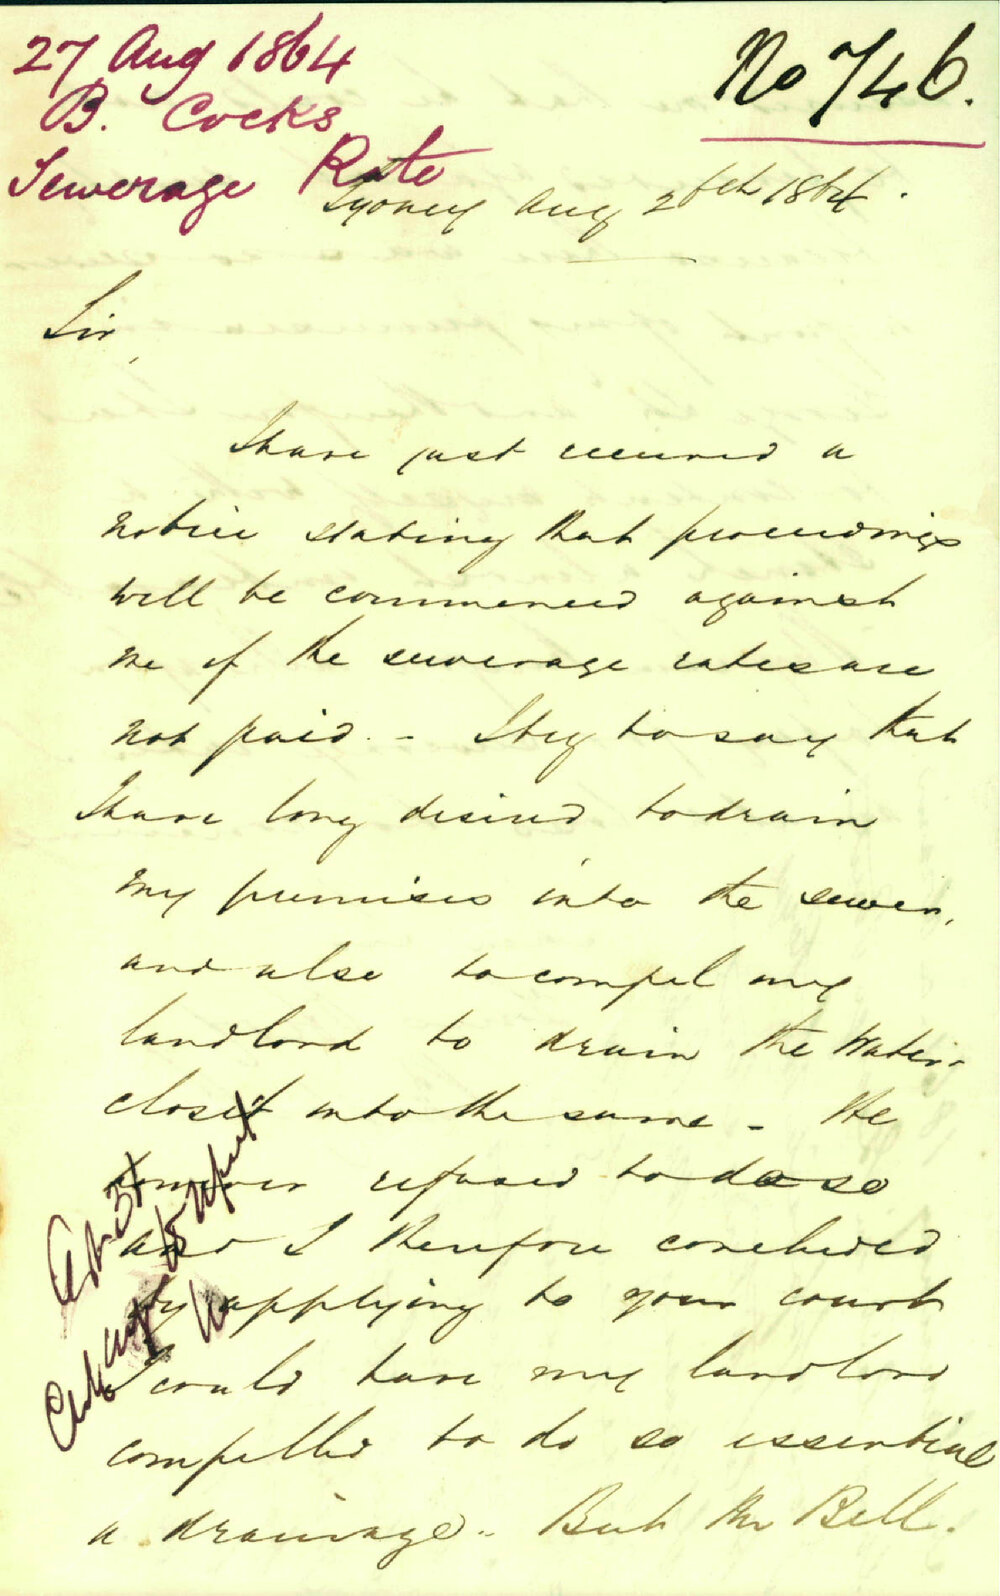 27 Aug 1864
B. Cocks
Sewerage Rate
No 746.
Sydney Aug 26th 1864.
Sir,
I have just received a
notice stating that proceedings
will be commenced against
me if the sewerage rates are
not paid. - I beg to say that
I have long desired to drain
my premises into the sewer,
and also to compel my
landlord to drain the Water-
closet into the same - He
however refused to do so
and I therefore concluded
by applying to your court
I could have my landlord
compelled to do so essential
a drainage - But Mr Bell.
to report